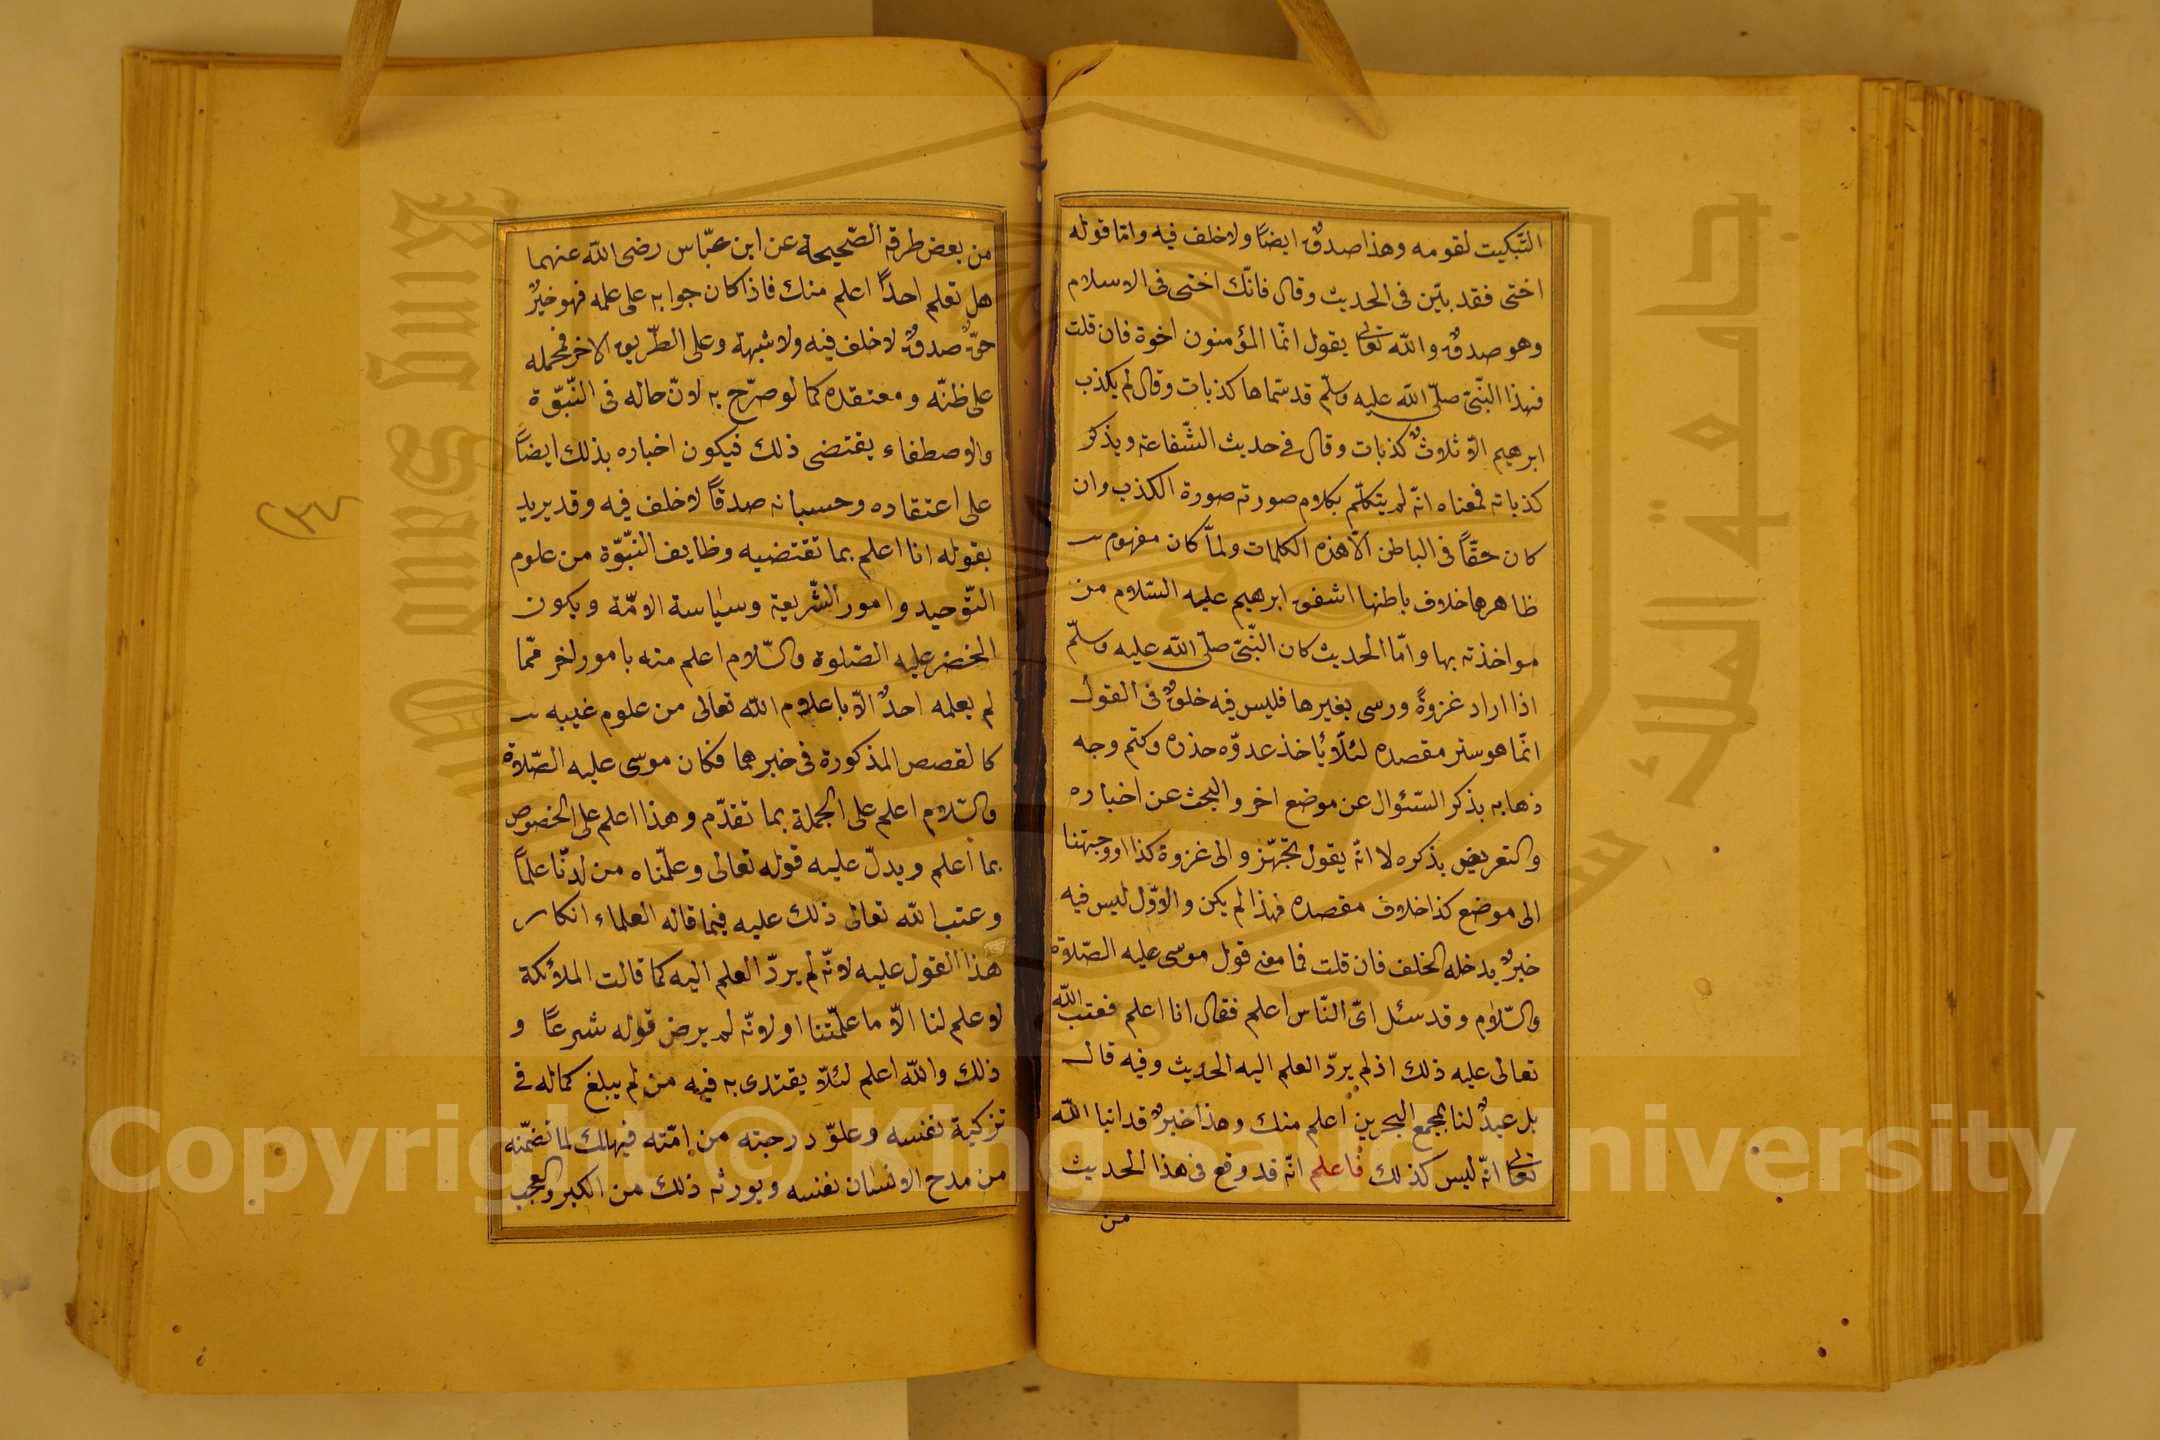 التّبكيت لقومه وهذا صدقٌ ايضًا ولا خلف فيه وامّا قوله
اختى فقد بيّن فى الحديث وقال فانّك اختى فى الاسلام
وهو صدقٌ والله تعالى يقول انّما المؤمنون اخوة فان قلت
فهذا النّبىّ صلّى الله عليه وسلّم قد سمّاها كذبات وقال لم يكذب
ابرهيم الّا ثلاثٌ كذبات وقال فى حديث الشّفاعة ويذكر
كذباته فمعناه انّه لم يتكلّم بكلام صورته صورة الكذب وان
كان حقّاً فى الباطن الّا هذه الكلمات ولمّا كان مفهوم
ظاهرها خلاف باطنها اشفق ابرهيم عليه السّلام من
مواخذته بها وامّا الحديث كان النّبىّ صلّى الله عليه وسلّم
اذا اراد غزوةً ورى بغيرها فليس فيه خلقٌ فى القول
انّما هو ستر مقصده لئلّا ياخذ عدوّه حذره وكتم وجه
ذهابه بذكر السّئوال عن موضع اخر والبحث عن اخباره
والتعريض بذكره لا انّه يقول تجهّزوا الى غزوة كذا او وجهتنا
الى موضع كذا خلاف مقصده فهذا لم يكن والاوّل ليس فيه
خبرٌ يدخله الخلف فان قلت فما معنى قول موسى عليه الصّلاة
والسّلام وقد سئل اىّ النّاس اعلم فقال انا اعلم فعتب الله
تعالى عليه ذلك اذ لم يردّ العلم اليه الحديث وفيه قال
بل عبدٌ لنا بمجمع البحرين اعلم منك وهذا خبرٌ قد انبا الله
تعالى انّه ليس كذلك فاعلم انّه قد وقع فى هذا الحديث
من
من بعض طرقه الصّحيحة عن ابن عبّاس رضى الله عنهما
هل تعلم احداً اعلم منك فاذا كان جوابه على علمه فهو خبرٌ
حقٌّ صدقٌ لا خلف فيه ولا شبهة وعلى الطّريق الاخر فمحمله
على ظنّه ومعتقده كما لو صرّح به لانّ حاله فى النّبوّة
والاصطفاء يقتضى ذلك فيكون اخباره بذلك ايضاً
على اعتقاده وحسبانه صدقاً لا خلف فيه وقد يريد
بقوله انا اعلم بما تقتضيه وظايف النّبوّة من علوم
التّوحيد وامور الشّريعة وسياسة الامّة ويكون
الخضر عليه الصّلوة والسّلام اعلم منه بامور اخر ممّا
لم يعلمه احدٌ الّا باعلام الله تعالى من علوم غيبه
كالقصص المذكورة فى خبرهما فكان موسى عليه الصّلاة
والسّلام اعلم على الجملة بما تقدّم وهذا اعلم على الخصوص
بما اعلم ويدلّ عليه قوله تعالى وعلّمناه من لدنّا علماً
وعتب الله تعالى ذلك عليه فيما قاله العلماء انكار
هذا القول عليه لانّه لم يردّ العلم اليه كما قالت الملائكة
لا علم لنا الّا ما علّمتنا او لانّه لم يرض قوله شرعًا و
ذلك والله اعلم لئلّا يقتدى به فيه من لم يبلغ كماله فى
تزكية نفسه وعلوّ درجته من امّته فيهلك لما تضمّنه
من مدح الانسان نفسه ويورثه ذلك من الكبر والعجب
Copyright © King Saud University
King Saud University
جامعة الملك سعود